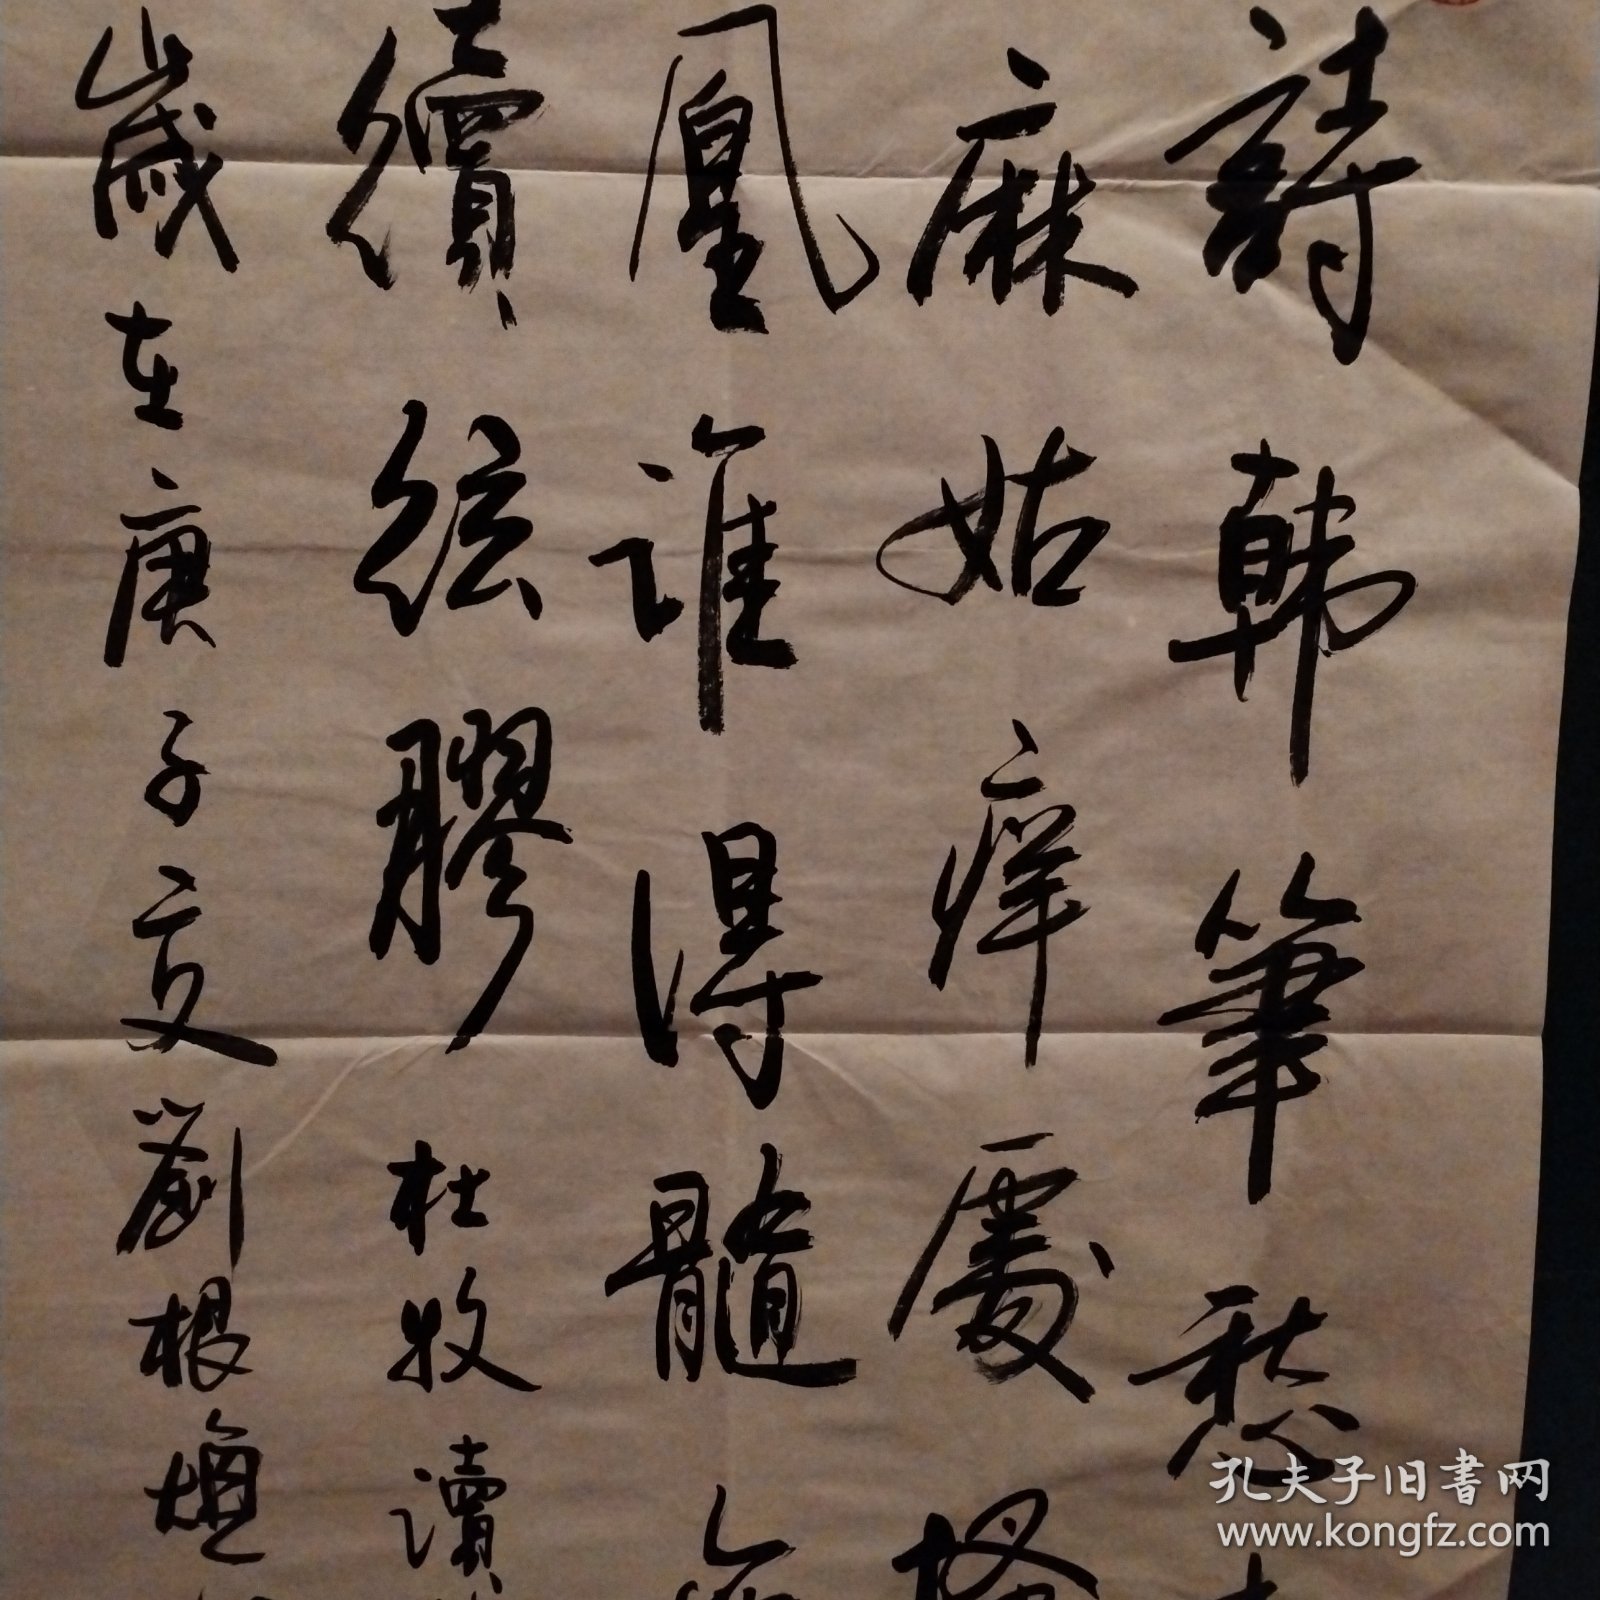 詩韓筆愁
麻姑痒處搔
凰誰得髓
續絃膠 杜牧讀
歲在庚子夏劉根
孔夫子旧书网
www.kongfz.com